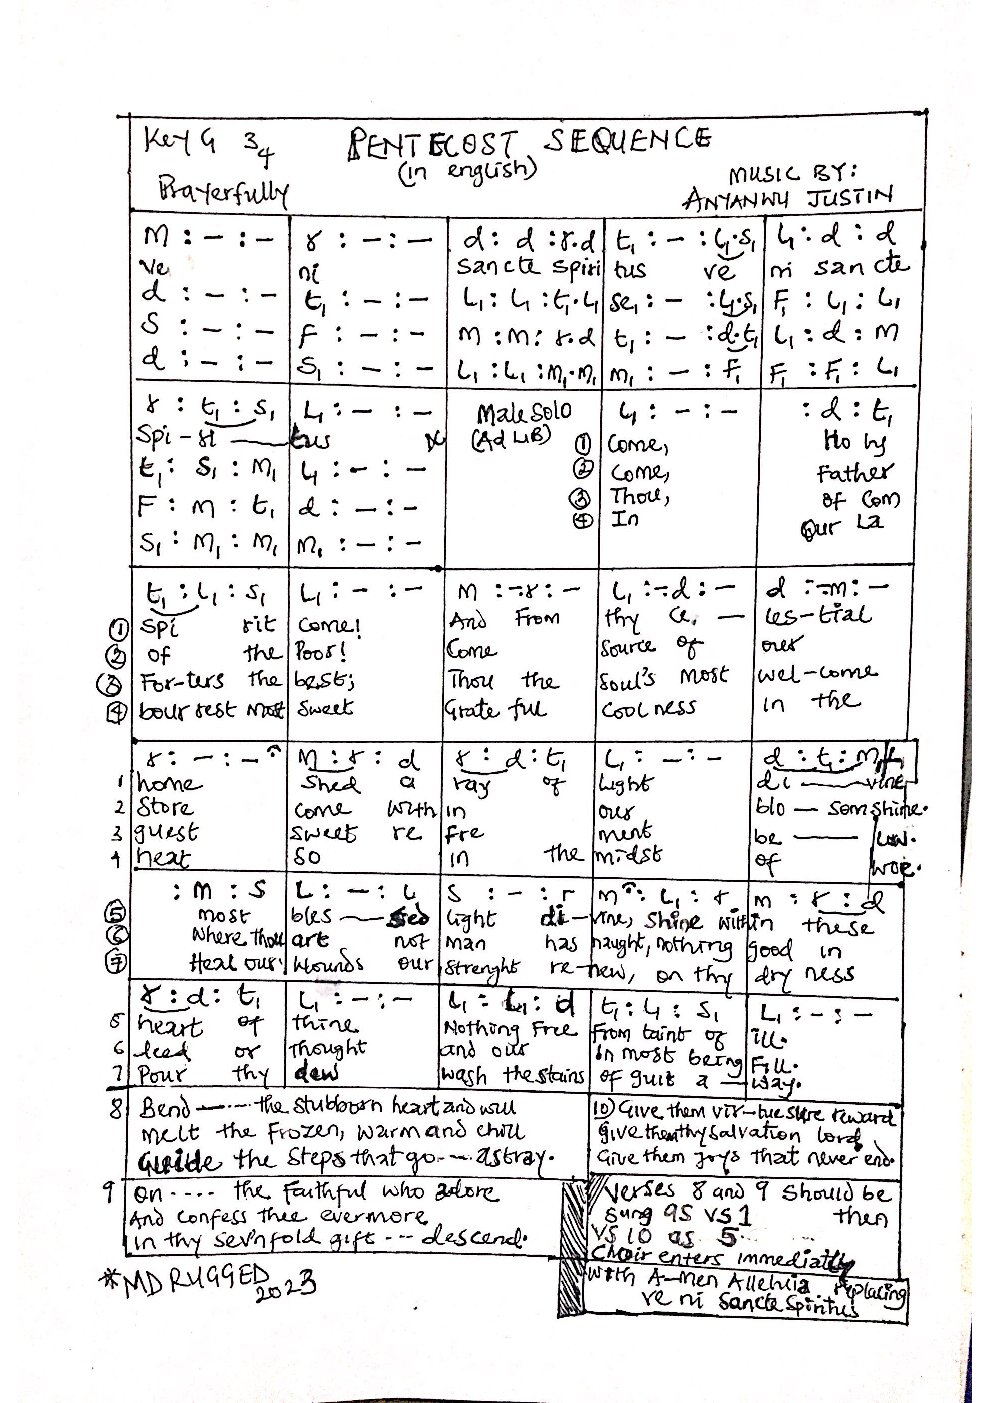 Key G 3/4 PENTECOST SEQUENCE
(in english)
Prayerfully
MUSIC BY:
ANYANWU JUSTIN
m : – : – | r : – : – | d : d : r.d | t₁ : – : L₁.S₁ | L₁ : d : d
Ve | ni | Sancte Spiri | tus ve | ni sancte
d : – : – | t₁ : – : – | L₁ : L₁ : t₁.L₁ | se₁ : – : L₁.S₁ | F₁ : L₁ : L₁
S : – : – | f : – : – | m : m : r.d | t₁ : – : d.t₁ | L₁ : d : m
d : – : – | S₁ : – : – | L₁ : L₁ : m₁.m₁ | m₁ : – : F₁ | F₁ : F₁ : L₁
r : t₁ : S₁ | L₁ : – : – | Male Solo | L₁ : – : – | : d : t₁
Spi - ri — tus | (Ad LIB) | ① Come, | Ho ly
t₁ : S₁ : m₁ | L₁ : – : – | ② Come, | Father
F : m : t₁ | d : – : – | ③ Thou, | of Com
S₁ : m₁ : m₁ | m₁ : – : – | ④ In | Our La
t₁ : L₁ : S₁ | L₁ : – : – | m : -.r : – | L₁ : -.d : – | d : -.m : –
① Spi rit | Come! | And From | thy Ce, — | les-tial
② of the | Poor! | Come | Source of | our
③ For-ters the | best; | Thou the | Soul's most | wel-come
④ bour rest most | Sweet | Grate ful | coolness | in the
r : – : – | m : r : d | r : d : t₁ | L₁ : – : – | d : t₁ : m₁ L₁
1 home | Shed a | ray of | light | di — vine
2 Store | come with | in | our | blo — som shine.
3 guest | sweet re | fre | ment | be — low.
4 heat | So | in the | midst | of woe.
: m : S | L : – : L | S : – : r | m : L₁ : r | m : r : d
⑤ most | bles — sed | light di – | vine, shine with | in these
⑥ Where thou | art not | man has | naught, nothing | good in
⑦ Heal our | Wounds our | Strenght re – | new, on thy | dry ness
r : d : t₁ | L₁ : – : – | L₁ : L₁ : d | t₁ : L₁ : S₁ | L₁ : – : –
5 heart of | thine | Nothing Free | From taint of | ill.
6 deed or | Thought | and our | in most being | Fill.
7 Pour thy | dew | wash the stains | of guit a — | way.
8 Bend —--- the stubborn heart and will
melt the frozen, warm and chill
Guide the steps that go --- astray.
9 On ---- the faithful who adore
And confess thee evermore
in thy sevnfold gift --- descend.
10) Give them vir-tue sure reward
give them thy salvation lord
Give them joys that never end.
Verses 8 and 9 should be
sung as VS 1 then
VS 10 as 5
Choir enters immediatly
with A-men Alleluia replacing
ve ni Sancte Spiritus
*MD RUGGED
2023